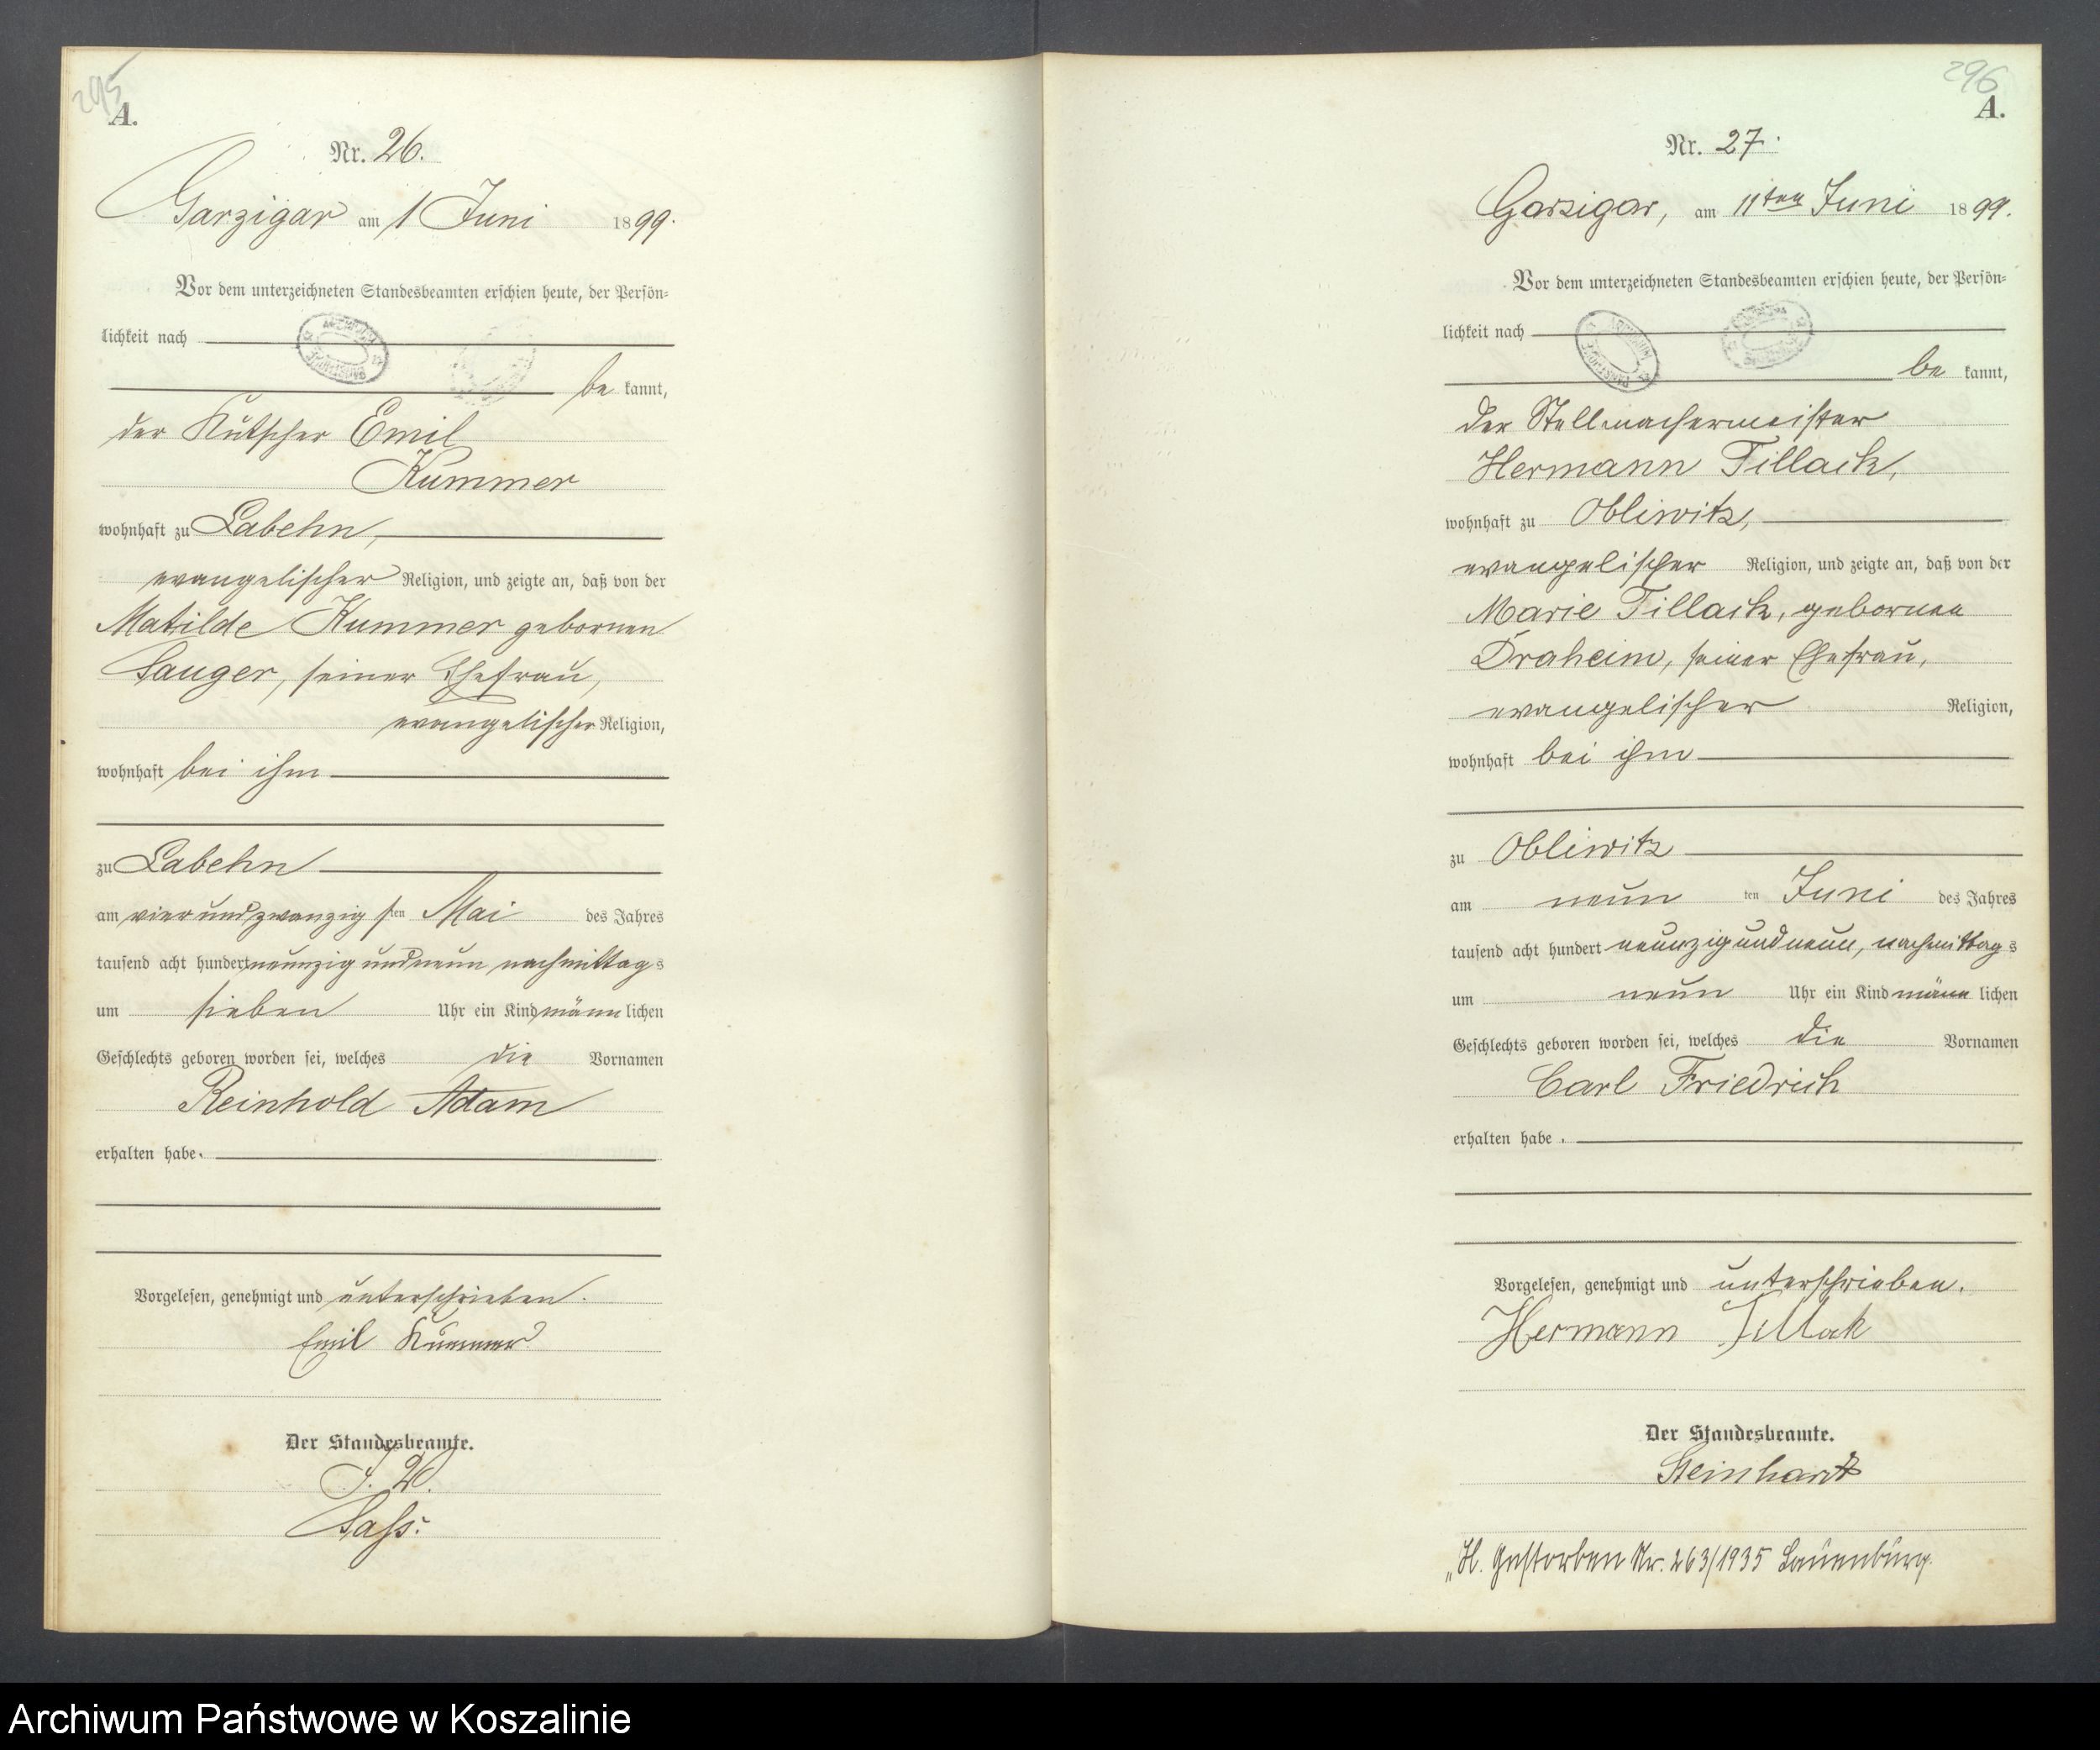 295
A.
Nr. 26.
Garzigar am 1 Juni 1899.
Vor dem unterzeichneten Standesbeamten erschien heute, der Persön-
lichkeit nach
be kannt,
der Kutscher Emil
Kummer
wohnhaft zu Labehn,
evangelischer Religion, und zeigte an, daß von der
Matilde Kummer gebornen
Sauger, seiner Ehefrau,
evangelischer Religion,
wohnhaft bei ihm
zu Labehn
am vierundzwanzigsten Mai des Jahres
tausend acht hundert neunzig und neun nachmittags
um sieben Uhr ein Kind männlichen
Geschlechts geboren worden sei, welches die Vornamen
Reinhold Adam
erhalten habe.
Vorgelesen, genehmigt und unterschrieben.
Emil Kummer
Der Standesbeamte.
J. V.
Sass.
296
A.
Nr. 27.
Garzigar, am 11ten Juni 1899.
Vor dem unterzeichneten Standesbeamten erschien heute, der Persön-
lichkeit nach
be kannt,
der Stellmachermeister
Hermann Tillack,
wohnhaft zu Obliwitz,
evangelischer Religion, und zeigte an, daß von der
Marie Tillack, gebornen
Draheim, seiner Ehefrau,
evangelischer Religion,
wohnhaft bei ihm
zu Obliwitz
am neun ten Juni des Jahres
tausend acht hundert neunzig und neun, nachmittags
um neun Uhr ein Kind männlichen
Geschlechts geboren worden sei, welches die Vornamen
Carl Friedrich
erhalten habe.
Vorgelesen, genehmigt und unterschrieben.
Hermann Tillack
Der Standesbeamte.
Steinhardt
„H. Gestorben Nr. 263/1935 Lauenburg.
Archiwum Państwowe w Koszalinie